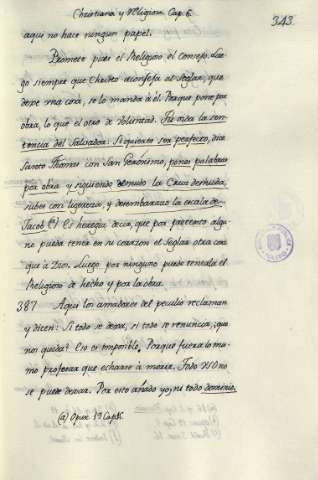 Christiano y Religioso Cap. 6.
343
aqui no hace ningun papel.
Promete pues el Religioso el consejo. Lue-
go siempre que Christo aconseja al Seglar, que
dexe una cosa, se lo manda à él. Porque pone por
obra, lo que el otro de voluntad. Fue oida la sen-
tencia del Salvador. Si quieres ser perfecto, dice
Santo Thomas con San Geronimo, pones palabras
por obra y siguiendo desnudo la Cruz desnuda,
subes con ligereza, y desembarazo la escala de
Jacob. Es heregia decir, que por pretexto algu-
no pueda tener en su corazon el Seglar otra cosa
que à Dios. Luego por ninguno puede tenerla el
Religioso de hecho y por la obra.
387 Aqui los amadores del peculio reclaman
y dicen: Si todo se dexa, si todo se renuncia, ¿que
nos queda? Eso es imposible. Porque fuera lo mis-
mo profesar que echarse à morir. Todo no
se puede dexar. Por esto añado yo, ni todo dominio,
(a) Opusc. 19 Cap.